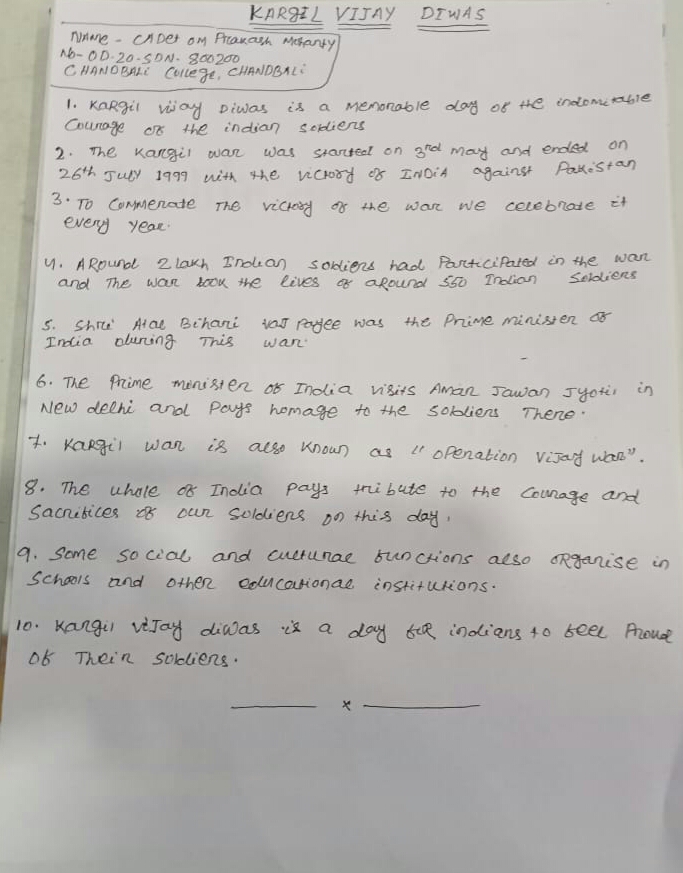 KARGIL VIJAY DIWAS
NAME - CADET OM PRAKASH MOHANTY
NO- OD-20-SDN- 800200
CHANDBALI College, CHANDBALI
1. KARGIL vijay Diwas is a Memorable day of the indomitable
Courage of the indian soldiers
2. The Kargil war was started on 3rd may and ended on
26th July 1999 with the victory of INDIA against Pakistan
3. To Commenate The victory of the war we celebrate it
every year.
4. Around 2 lakh Indian soldiers had Participated in the war
and The war took the lives of around 550 Indian Soldiers
5. Shri Atal Bihari Vaj Payee was the Prime minister of
India during This war.
6. The Prime minister of India visits Amar Jawan Jyoti in
New delhi and Pays homage to the soldiers There.
7. Kargil war is also Known as "operation vijay war".
8. The whole of India Pays tribute to the Courage and
Sacrifices of our soldiers on this day.
9. Some social and cultural functions also organise in
Schools and other educational institutions.
10. Kargil viJay diwas is a day for indians to feel Proud
of Their soldiers.
x